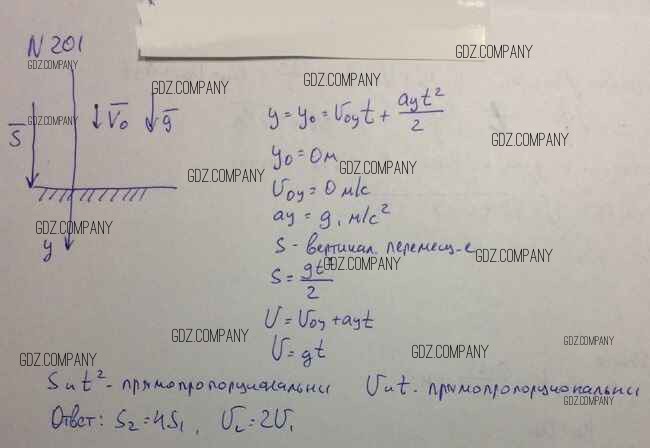 N 201
GDZ.COMPANY
GDZ.COMPANY
GDZ.COMPANY
GDZ.COMPANY
S
GDZ.COMPANY
V₀
g
y = y₀ = υ₀yt + ayt²/2
GDZ.COMPANY
y₀ = 0м
GDZ.COMPANY
GDZ.COMPANY
υ₀y = 0 м/с
ay = g, м/с²
GDZ.COMPANY
y
S - вертикал. перемещ-е
GDZ.COMPANY
GDZ.COMPANY
S = gt²/2
υ = υ₀y + ayt
GDZ.COMPANY
GDZ.COMPANY
υ = gt
GDZ.COMPANY
GDZ.COMPANY
S и t² - прямопропорциональны
υ и t - прямопропорциональны
GDZ.COMPANY
Ответ: S₂ = 4S₁, υ₂ = 2υ₁